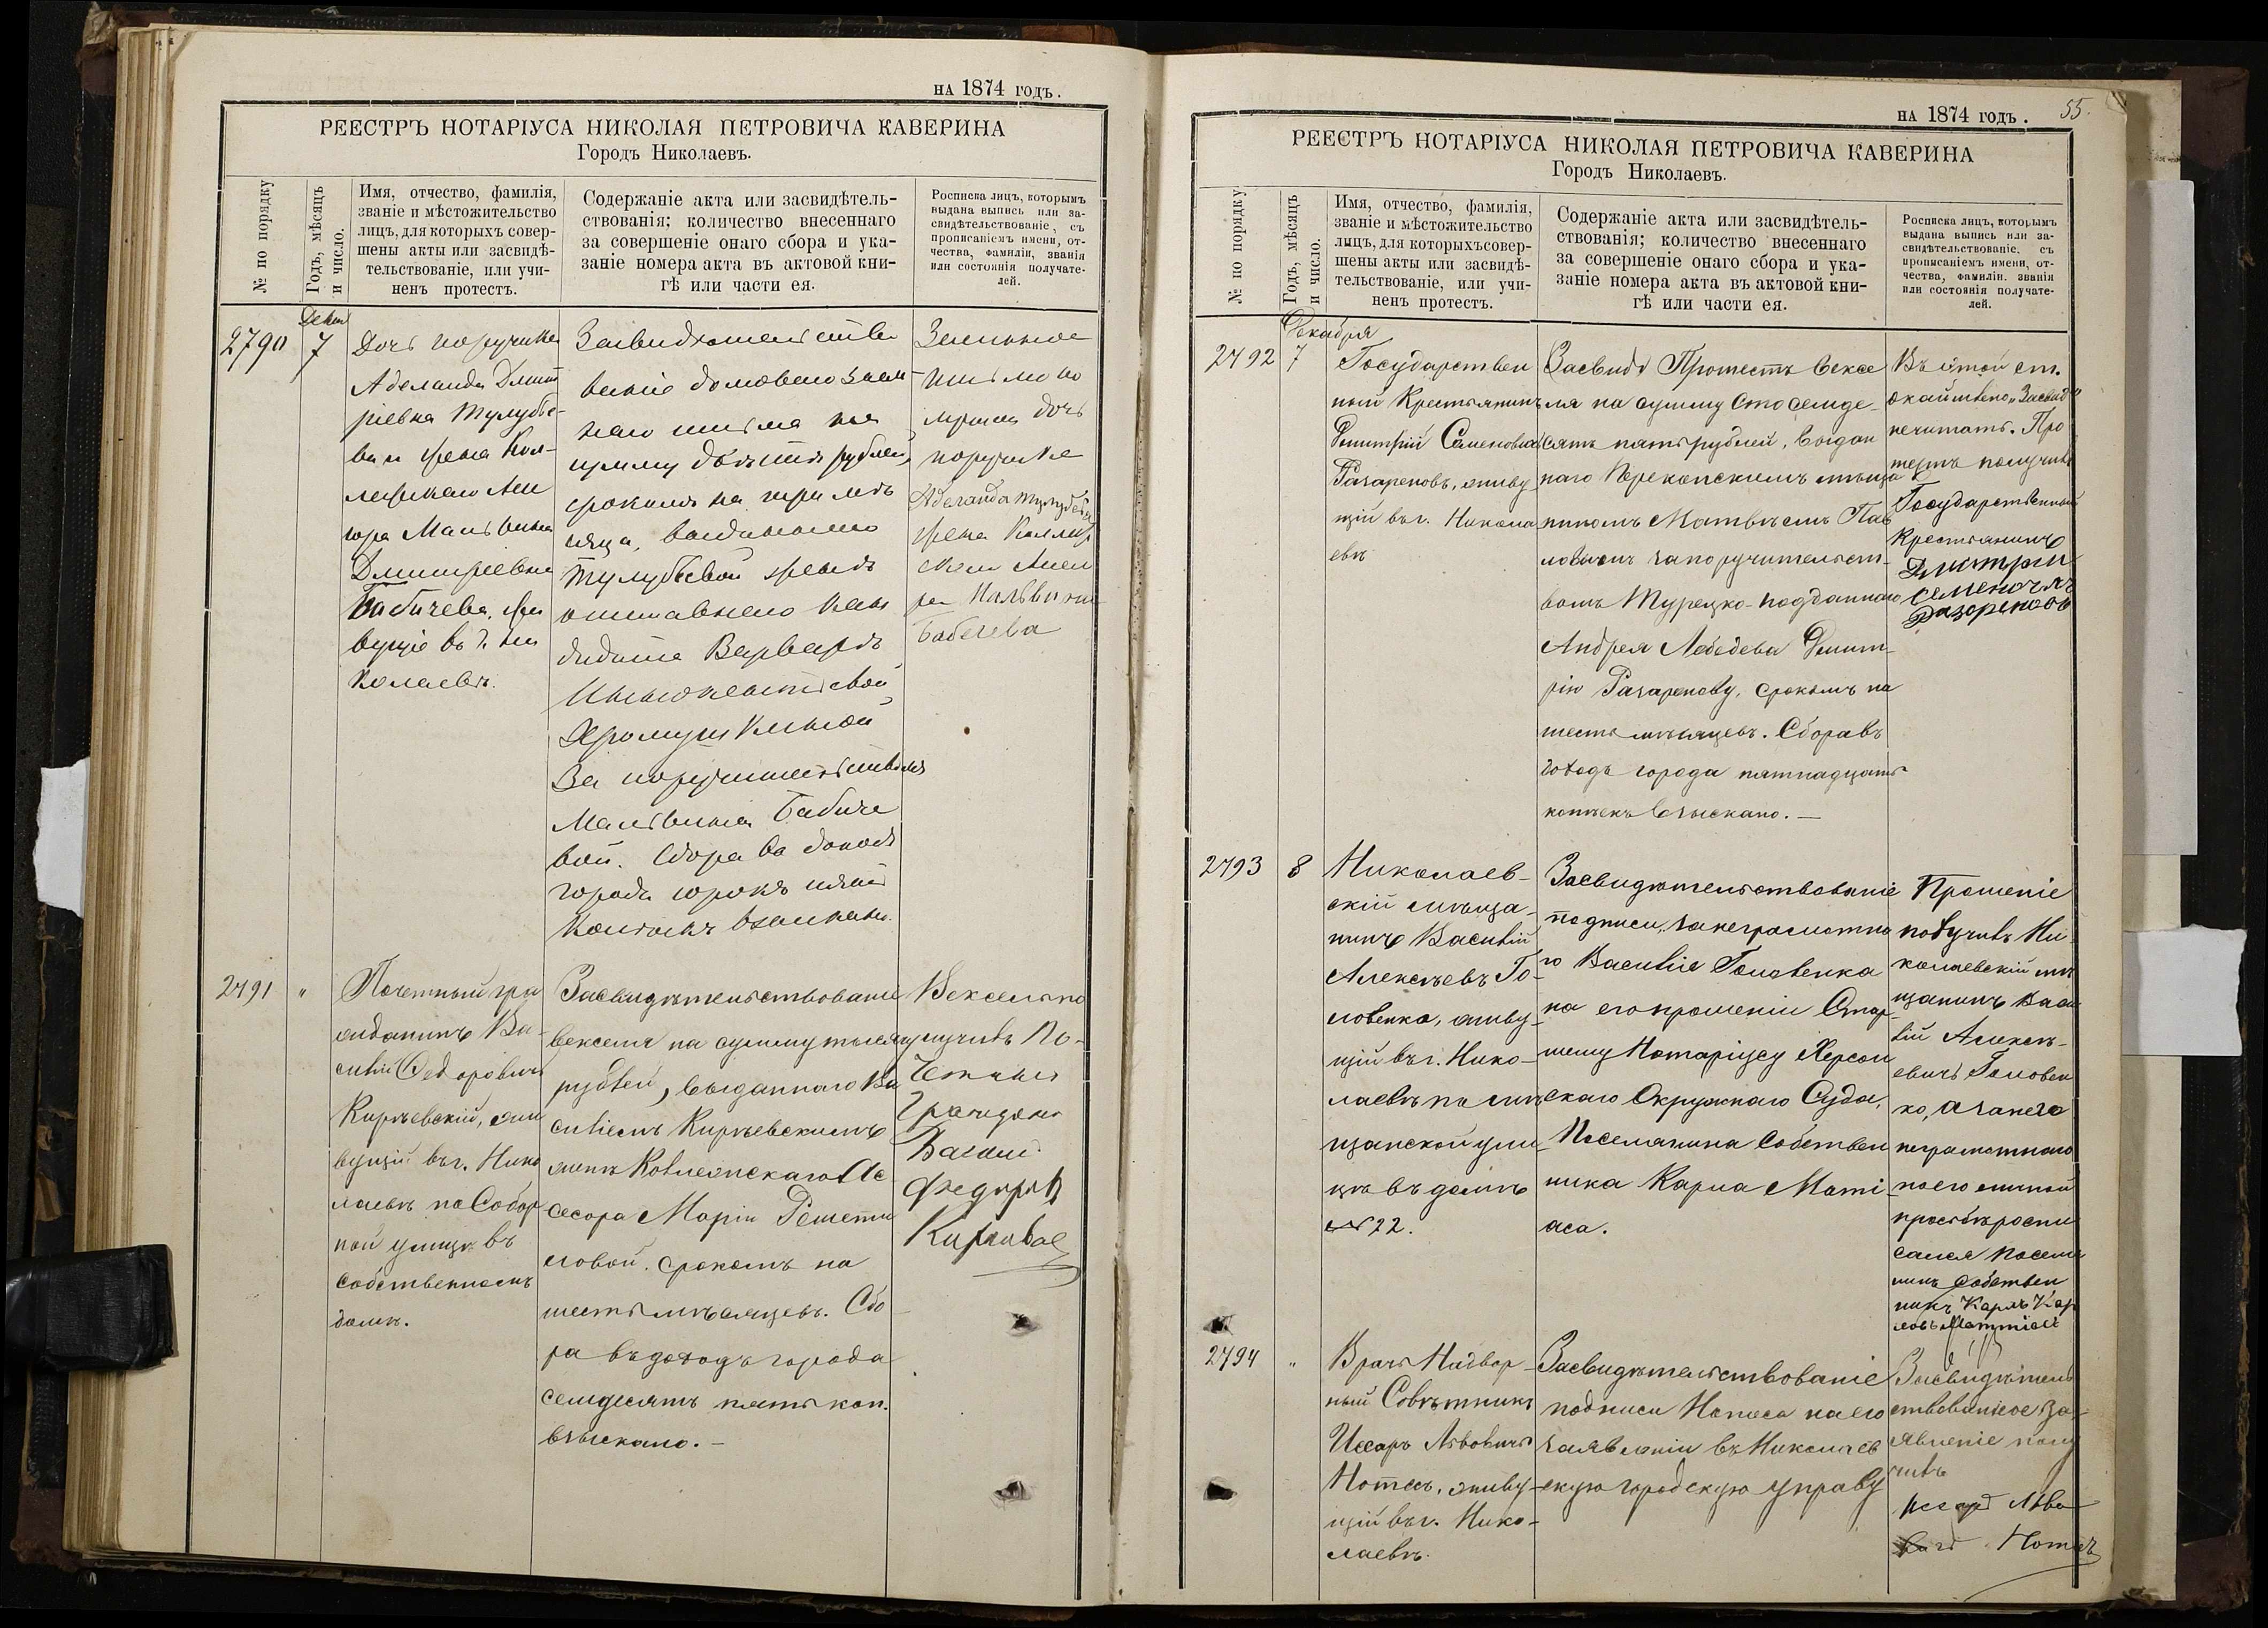 НА 1874 годъ.
РЕЕСТРЪ НОТАРІУСА НИКОЛАЯ ПЕТРОВИЧА КАВЕРИНА
Городъ Николаевъ.
№ по порядку
Годъ, мѣсяцъ
и число.
Имя, отчество, фамилія,
званіе и мѣстожительство
лицъ, для которыхъ совер-
шены акты или засвидѣ-
тельствованіе, или учи-
ненъ протестъ.
Содержаніе акта или засвидѣтель-
ствованія; количество внесеннаго
за совершеніе онаго сбора и ука-
заніе номера акта въ актовой кни-
гѣ или части ея.
Росписка лицъ, которымъ
выдана выпись или за-
свидѣтельствованіе, съ
прописаніемъ имени, от-
чества, фамиліи, званія
или состоянія получате-
лей.
2790
7
Дочь поручика
Аделаида Дмит
ріевна Тулубье-
ва и жена Кол-
лежскаго Ассе
сора Мальвина
Дмитріевна
Бабичева, жи
вущіе въ г. Ни
колаевѣ.
Засвидѣтельство
ваніе домоваго заем-
наго письма на
сумму двѣсти рублей,
срокомъ на три мѣ
сяца, выданнаго
Тулубьевой женѣ
отставнаго кан
дидата Варварѣ
Хромушкиной
За поручительствомъ
Мальвины Бабиче
вой. Сбора въ доходъ
города сорокъ пять
копѣекъ взыскано.
Заемное
письмо по
лучили дочь
поручика
Аделаида Тулубьева
жена Коллеж
скаго Ассес
ра Мальвина
Бабичева
2791
"
Почетный гра
жданинъ Ва-
силій Федоровичъ
Кирѣевскій, жи
вущій въ г. Нико
лаевѣ по Собор
ной улицѣ въ
собственномъ
домѣ.
Засвидѣтельствованіе
векселя на сумму тысячу
рублей, выданнаго Ва
силіемъ Кирѣевскимъ
женѣ Коллежскаго Ас
сесора Маріи Решетни
ловой, срокомъ на
шесть мѣсяцевъ. Сбо
ра въ доходъ города
семдесятъ пять коп.
взыскано.-
Вексель по
лучилъ По-
четный
Гражданинъ
Василій
Федоровъ
НА 1874 годъ.
55.
РЕЕСТРЪ НОТАРІУСА НИКОЛАЯ ПЕТРОВИЧА КАВЕРИНА
Городъ Николаевъ.
№ по порядку
Годъ, мѣсяцъ
и число.
Имя, отчество, фамилія,
званіе и мѣстожительство
лицъ, для которыхъ совер-
шены акты или засвидѣ-
тельствованіе, или учи-
ненъ протестъ.
Содержаніе акта или засвидѣтель-
ствованія; количество внесеннаго
за совершеніе онаго сбора и ука-
заніе номера акта въ актовой кни-
гѣ или части ея.
Росписка лицъ, которымъ
выдана выпись или за-
свидѣтельствованіе, съ
прописаніемъ имени, от-
чества, фамиліи, званія
или состоянія получате-
лей.
Декабря
2792
7
Государствен
ный Крестьянинъ
Дмитрій Семеновичъ
Разареновъ, живу
щій въ г. Никола
евѣ
Засвидѣ Протестъ вексе
ля на сумму сто семде-
сятъ пять рублей, выдан
наго Перекопскимъ мѣща
ниномъ Матвѣемъ Пав
ловымъ за поручительст-
вомъ Турецко-подданнаго
Андрея Лебедева Дмит-
рію Разаренову, срокомъ на
шесть мѣсяцевъ. Сбора въ
доходъ города пятнадцать
копѣекъ взыскано.—
Въ 4той ст.
окаймлено „Засвид"
нечитать. Про
тестъ получилъ
Государственный
Крестьянинъ
Дмитрій
Семеновичъ
Разореновъ
2793
8
Николаев-
скій мѣща-
нинъ Василій
Алексѣевъ Го-
ловенко, живу-
щій въ г. Нико-
лаевѣ по мѣ
щанской ули
цѣ въ домѣ
№ 22.
Засвидѣтельствованіе
подписи, за неграмотна
го Василія Головенка
на его прошеніи Стар-
шему Нотаріусу Херсон
скаго Окружнаго Суда,
Поселянина Собствен
ника Карла Маті-
аса.
Прошеніе
получилъ Ни-
колаевскій мѣ
щанинъ Васи
лій Алексѣ-
евичъ Головен
ко, а за него
неграмотнаго
по его личной
просьбѣ роспи
сался поселя
нинъ собствен
никъ Карлъ Кар
ловъ Маттіасъ
2794
"
Врачъ Надвор-
ный Совѣтникъ
Иссаръ Львовичъ
Нотесъ, живу-
щій въ г. Нико-
лаевѣ.
Засвидѣтельствованіе
подписи Нотеса на его
заявленіи въ Николаев
скую городскую управу
Засвидѣтель
ствованное за-
явленіе полу
чилъ
Иссаръ Льво
вичъ Нотесъ